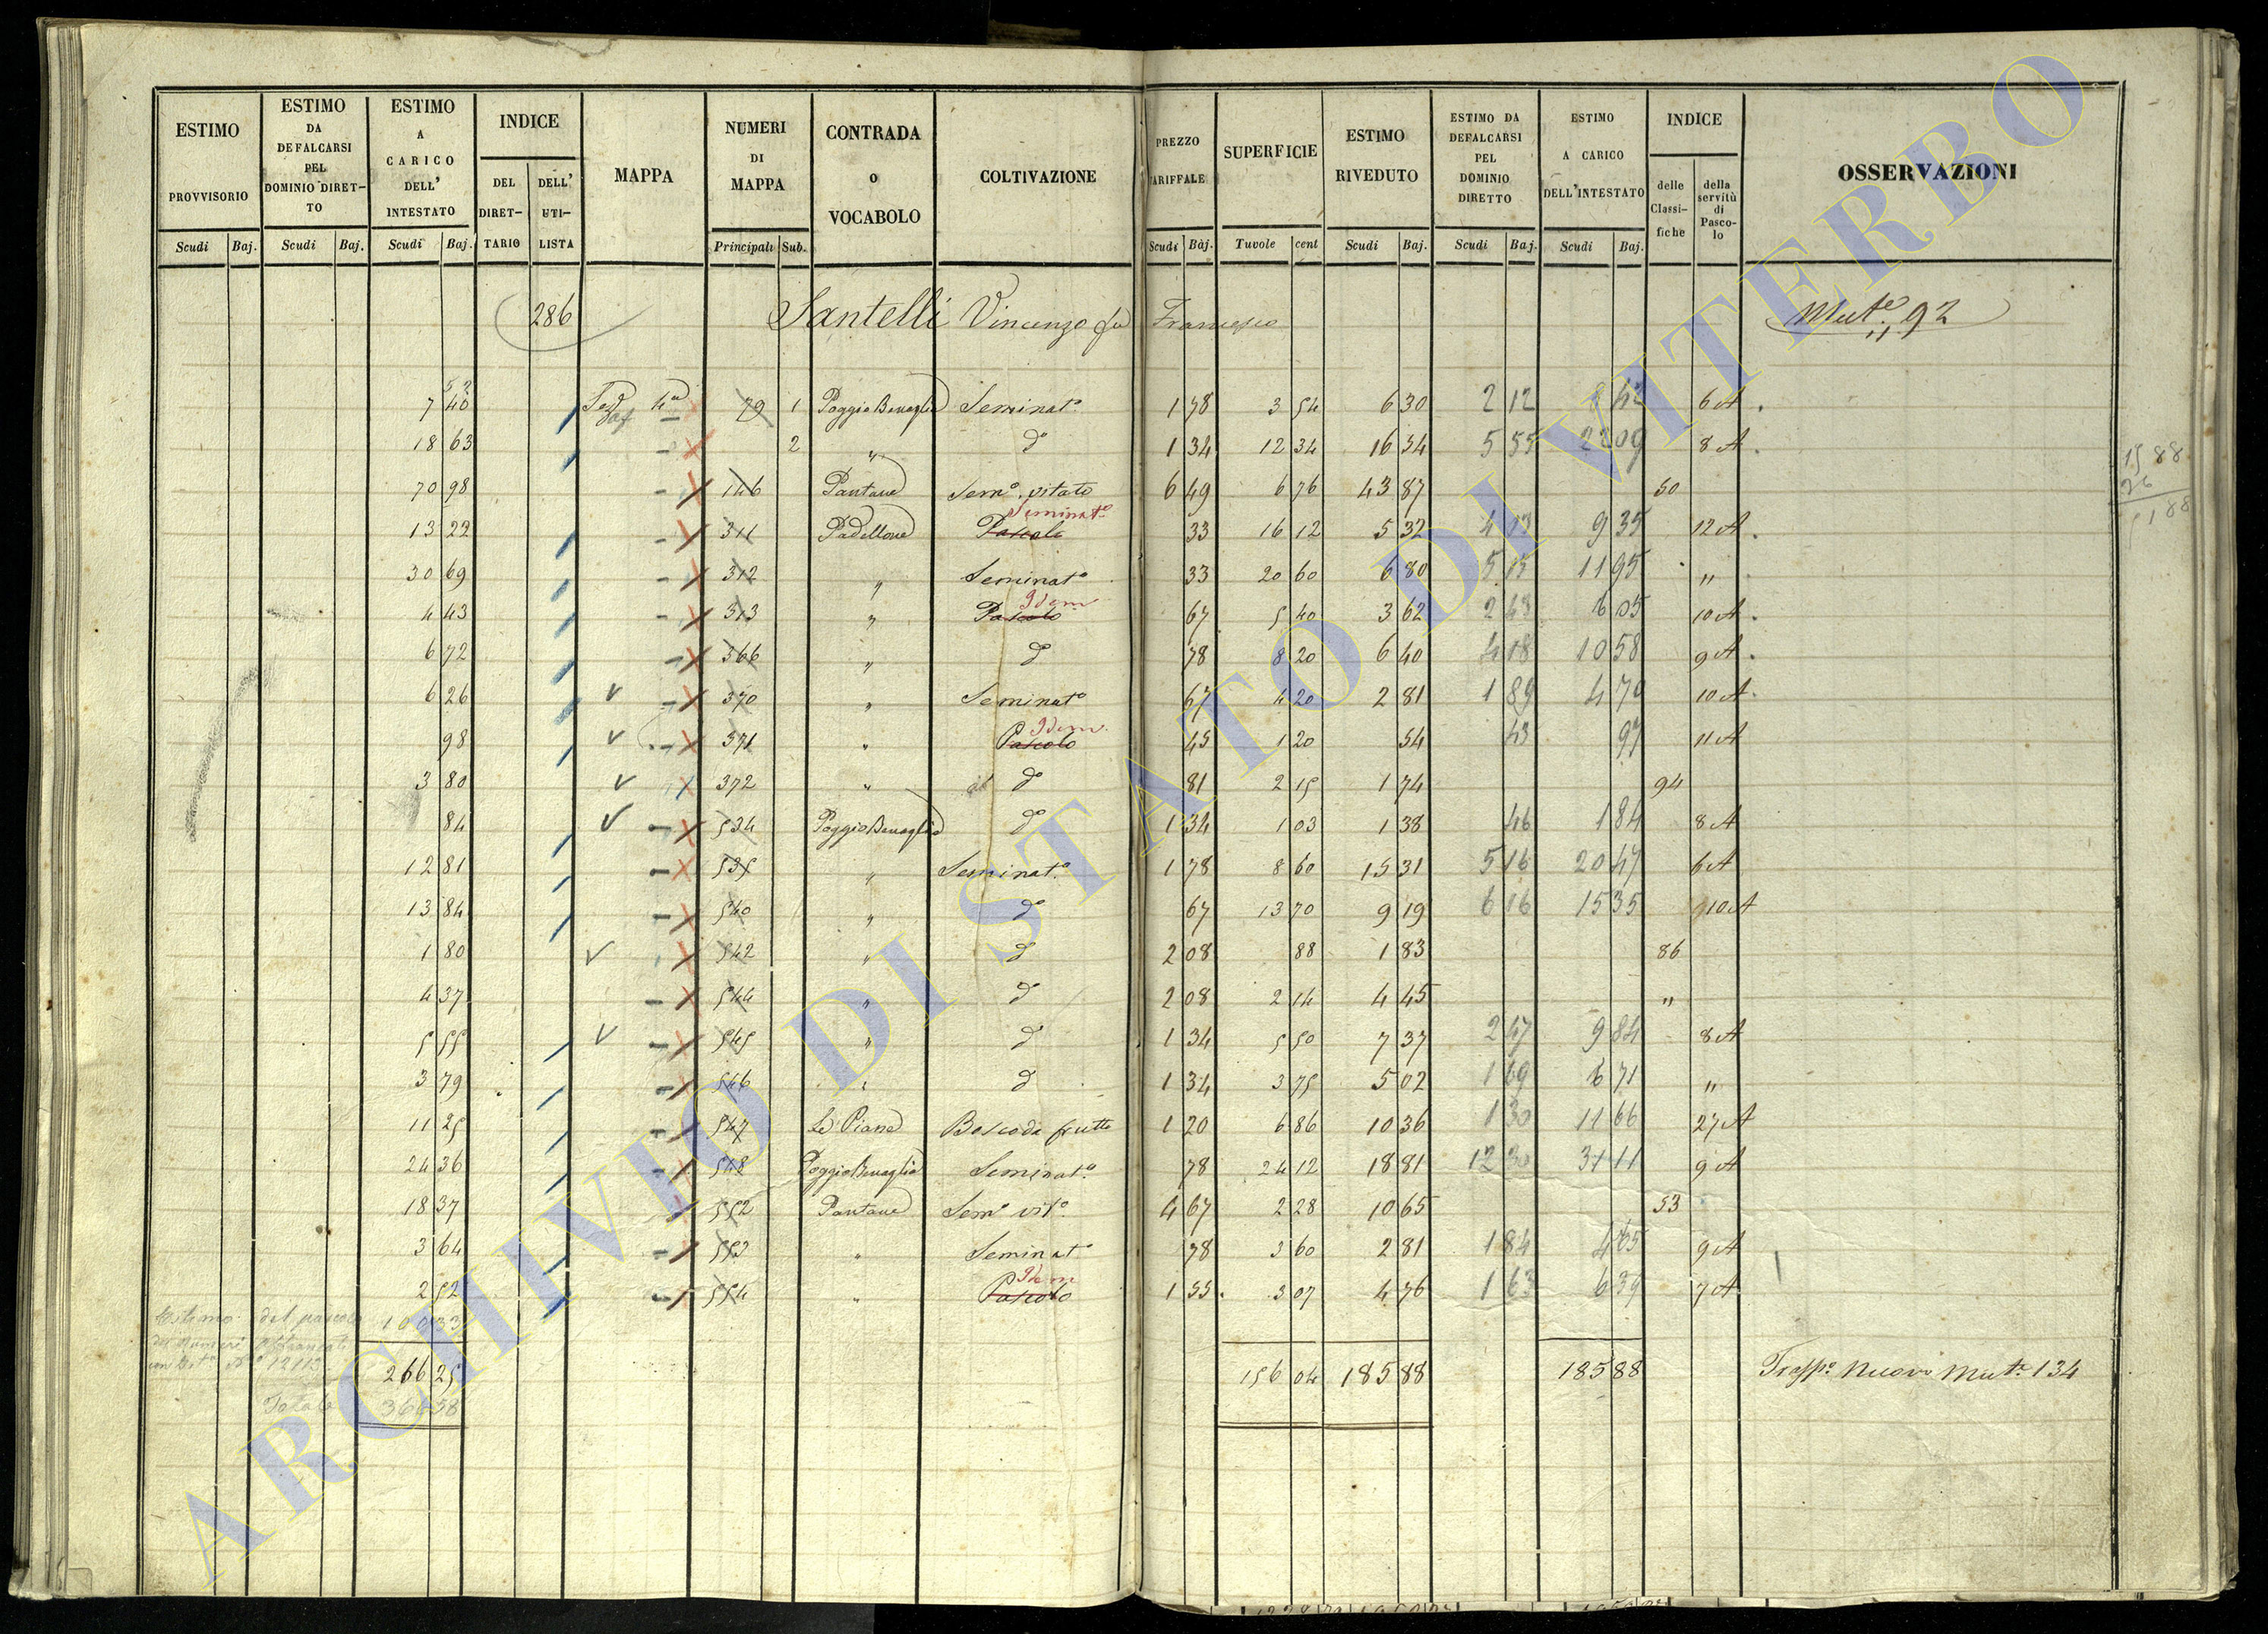 ESTIMO PROVVISORIO | ESTIMO DA DEFALCARSI PEL DOMINIO DIRETTO | ESTIMO A CARICO DELL' INTESTATO | INDICE | MAPPA | NUMERI DI MAPPA | CONTRADA O VOCABOLO | COLTIVAZIONE | PREZZO TARIFFALE | SUPERFICIE | ESTIMO RIVEDUTO | ESTIMO DA DEFALCARSI PEL DOMINIO DIRETTO | ESTIMO A CARICO DELL'INTESTATO | INDICE | OSSERVAZIONI
DEL DIRETTARIO | DELL' UTILISTA | delle Classifiche | della servitù di Pascolo
Scudi Baj. Scudi Baj. Scudi Baj. Principali Sub. Scudi Baj. Tuvole cent Scudi Baj. Scudi Baj. Scudi Baj.
286 Santelli Vincenzo fu Francesco Mut.e 92
7 40 79 1 Seminat.o 1 78 3 54 6 30 2 12 6 A
18 63 2 " d.o 1 34 12 34 16 54 5 55 22 09 8 A
70 98 146 Pantane Sem.o vitato 6 49 6 76 43 87 50
Seminat.o
13 22 311 Padellone Pascolo 33 16 12 5 32 4 13 9 35 12 A
30 69 312 " Seminat.o 33 20 60 6 80 5 15 11 95 "
Idem
4 43 313 " Pascolo 67 5 40 3 62 2 43 6 05 10 A
6 72 366 " d 78 8 20 6 40 4 18 10 58 9 A
6 26 370 " Seminat.o 67 4 20 2 81 1 89 4 70 10 A
Idem
98 371 " Pascolo 45 1 20 54 43 97 11 A
3 80 372 " d.o 81 2 15 1 74 94
84 534 d.o 1 34 1 03 1 38 46 1 84 8 A
12 81 535 " Seminat.o 1 78 8 60 15 31 5 16 20 47 6 A
13 84 540 " d.o 67 13 70 9 19 6 16 15 35 10 A
1 80 542 " d 2 08 88 1 83 86
4 37 544 " d 2 08 2 14 4 45 "
5 55 545 " d 1 34 5 50 7 37 2 47 9 84 8 A
3 79 546 " d 1 34 3 75 5 02 1 69 6 71 "
11 25 547 Le Piane Bosco da frutto 1 20 6 86 10 36 1 30 11 66 27 A
24 36 548 Seminat.o 78 24 12 18 81 12 30 31 11 9 A
18 37 552 Pantane Sem.o vit.o 4 67 2 28 10 65 53
3 64 553 " Seminat.o 78 3 60 2 81 1 84 4 65 9 A
Idem
2 52 554 " Pascolo 1 55 3 07 4 76 1 63 6 39 7 A
Estimo del pascolo 100 33
dei Numeri affrancati
266 25 156 04 185 88 185 88 Trasp.o Nuovo Mut.e 134
Totale 366 58
ARCHIVIO DI STATO DI VITERBO